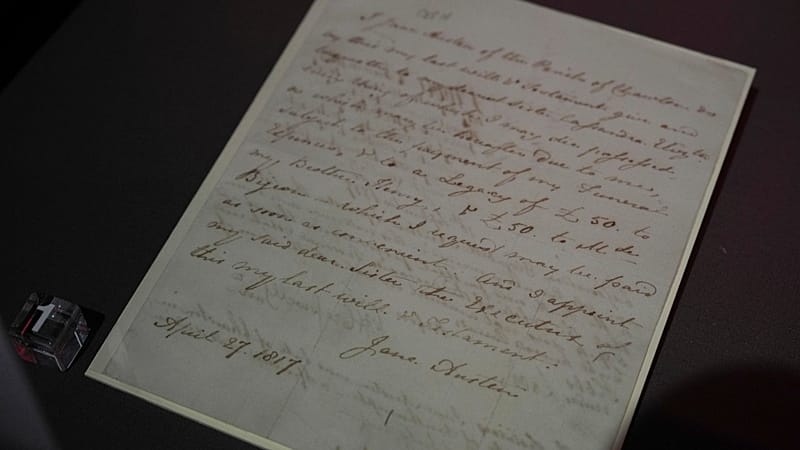 I Jane Austen of the Parish of Chawton do
by this my last will & Testament give and
bequeath to my dearest Sister Cassandra Elizth
every thing of which I may die possessed,
or which may be hereafter due to me,
subject to the payment of my Funeral
Expences, & to a Legacy of £50. to
my Brother Henry, & £50. to Mde de
Bigeon - which I request may be paid
as soon as convenient. And I appoint
my said dear Sister the Executrix of
this my last will & Testament.
Jane Austen
April 27. 1817
1